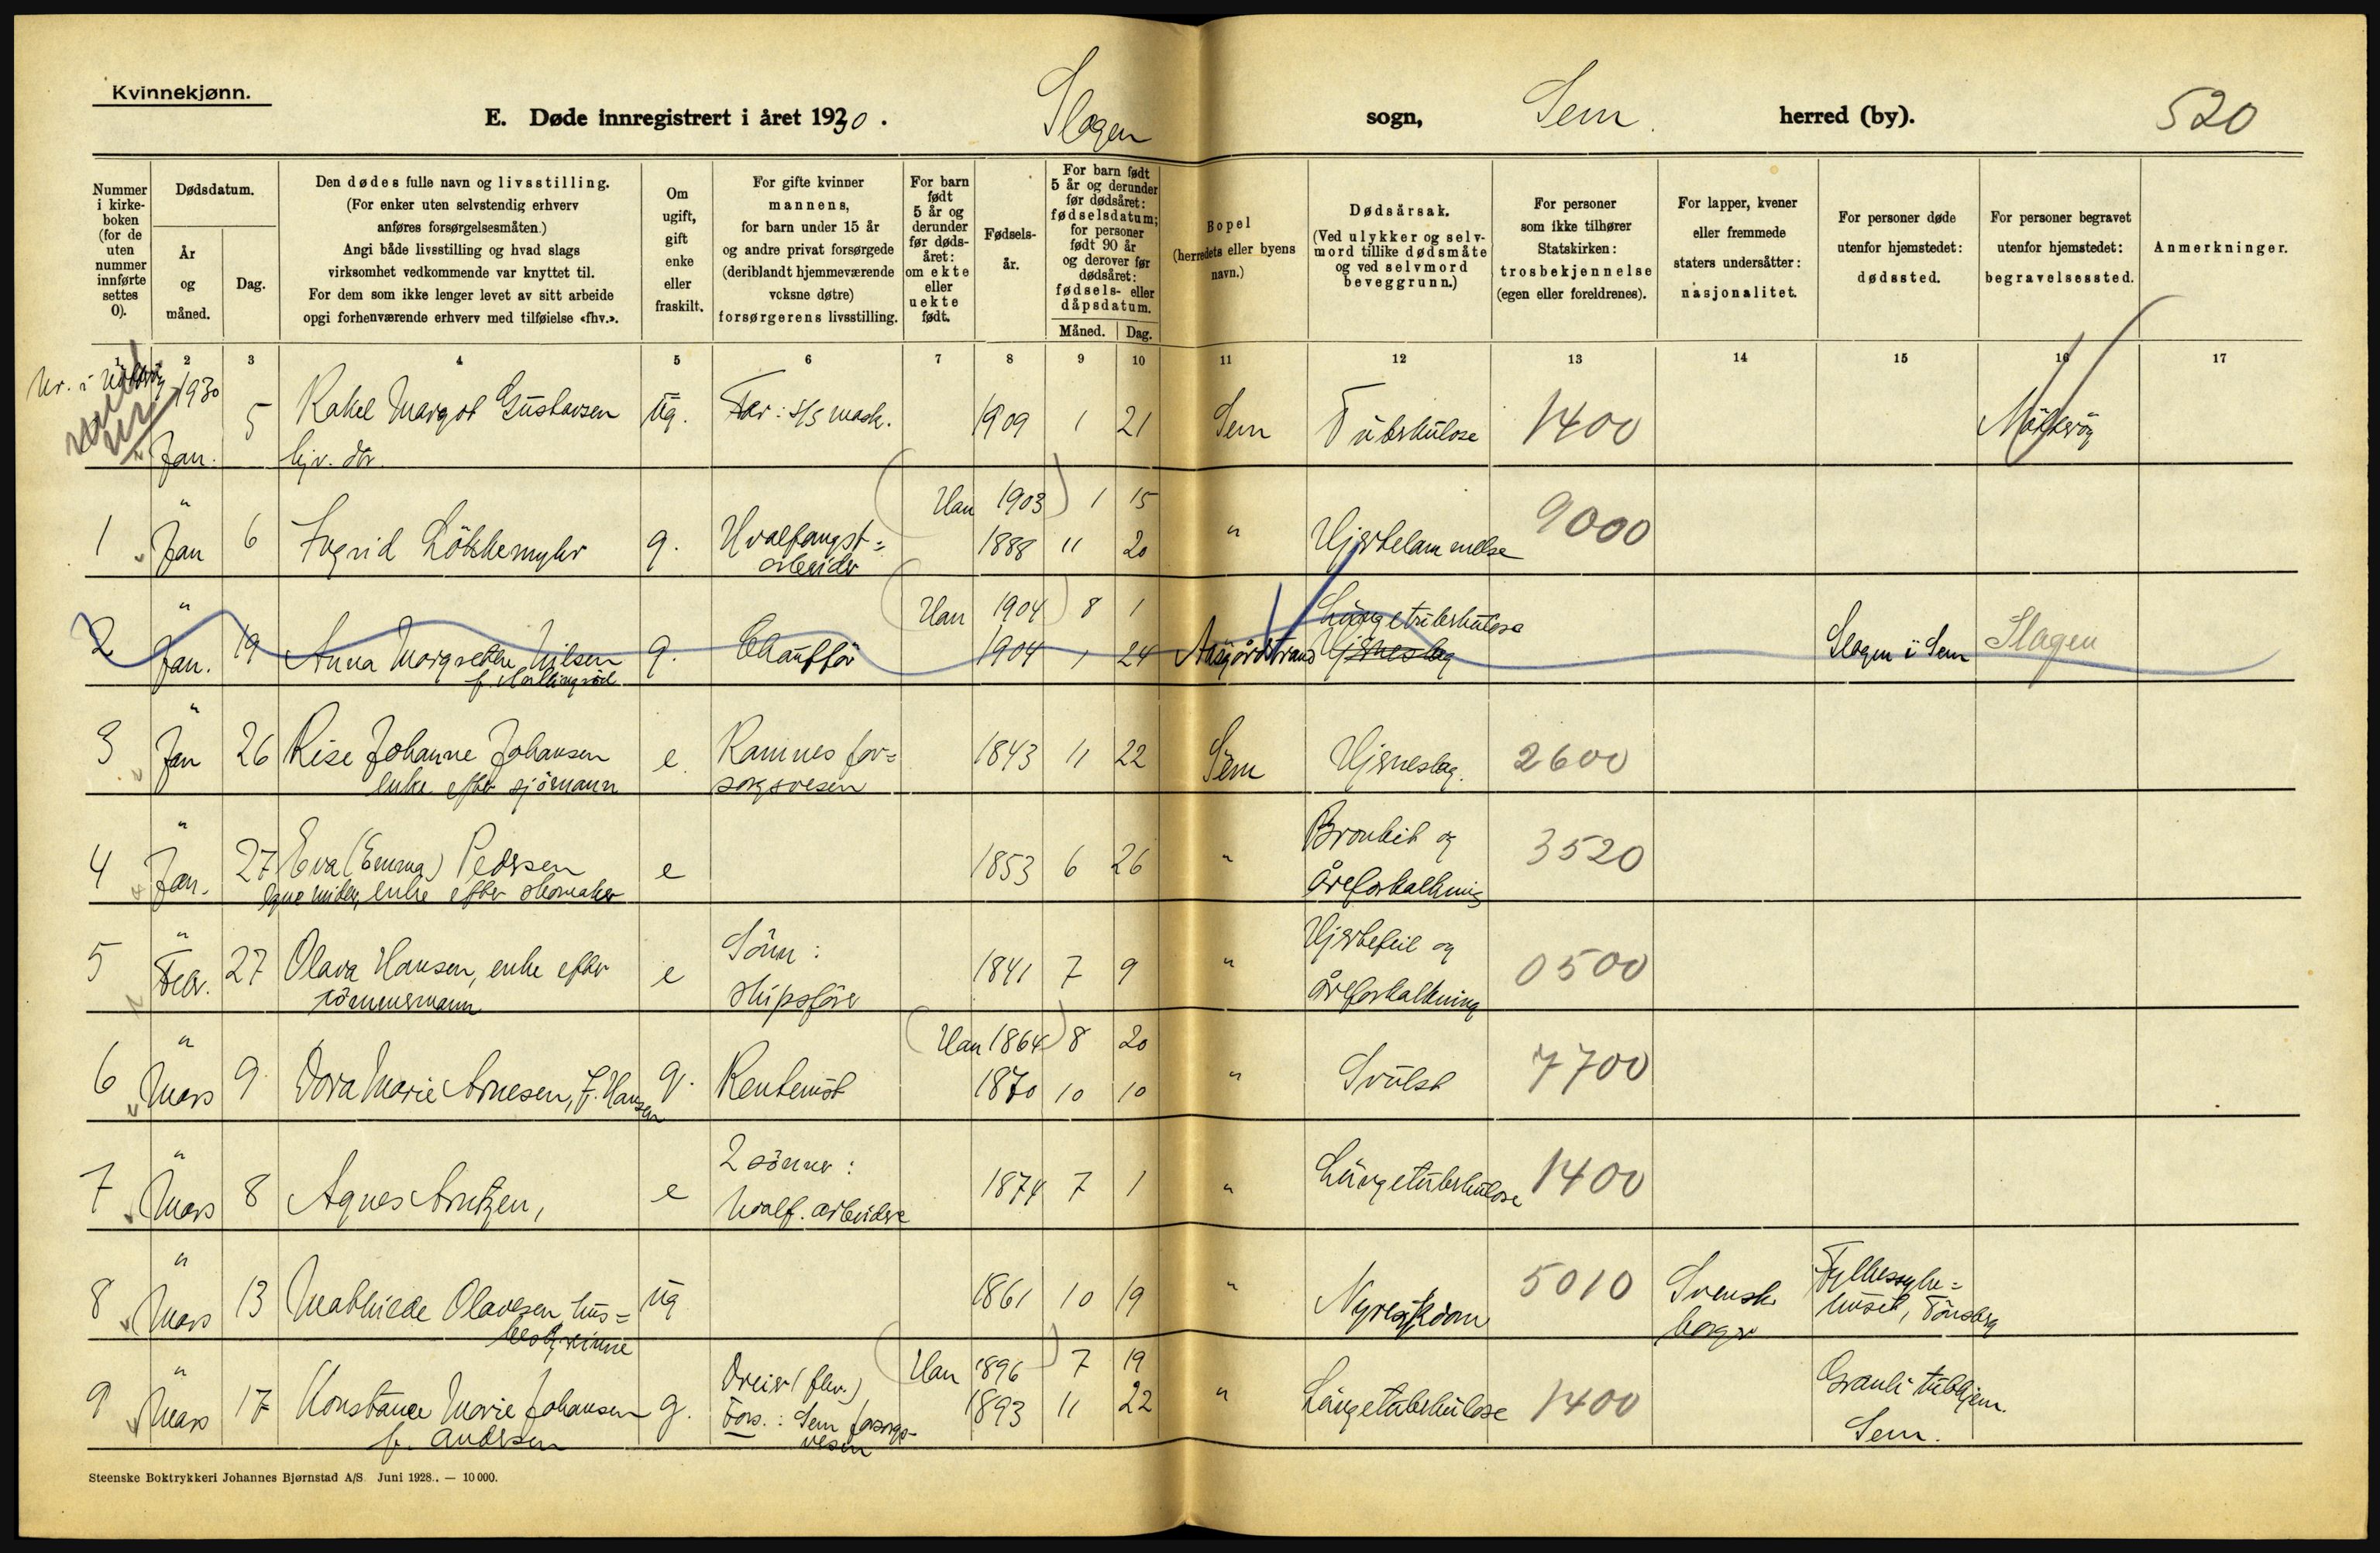 Kvinnekjønn.
E. Døde innregistrert i året 1930. Slagen sogn, Sem herred (by). 520
Nummer i kirkeboken (for de uten nummer innførte settes 0).
Dødsdatum.
År og måned.
Dag.
Den dødes fulle navn og livsstilling.
(For enker uten selvstendig erhverv
anføres forsørgelsesmåten.)
Angi både livsstilling og hvad slags
virksomhet vedkommende var knyttet til.
For dem som ikke lenger levet av sitt arbeide
opgi forhenværende erhverv med tilføielse «fhv.».
Om ugift, gift enke eller fraskilt.
For gifte kvinner
mannens,
for barn under 15 år
og andre privat forsørgede
(deriblandt hjemmeværende
voksne døtre)
forsørgerens livsstilling.
For barn født 5 år og derunder før dødsåret: om ekte eller uekte født.
Fødselsår.
For barn født 5 år og derunder før dødsåret: fødselsdatum; for personer født 90 år og derover før dødsåret: fødsels- eller dåpsdatum.
Måned. Dag.
Bopel
(herredets eller byens navn.)
Dødsårsak.
(Ved ulykker og selvmord tillike dødsmåte og ved selvmord beveggrunn.)
For personer som ikke tilhører Statskirken: trosbekjennelse (egen eller foreldrenes).
For lapper, kvener eller fremmede staters undersåtter: nasjonalitet.
For personer døde utenfor hjemstedet: dødssted.
For personer begravet utenfor hjemstedet: begravelsessted.
Anmerkninger.
1 2 3 4 5 6 7 8 9 10 11 12 13 14 15 16 17
Nr. i
1930 Jan. 5 Rakel Margot Gustavsen ug. Far: s/s mask. 1909 1 21 Sem Tuberkulose 1400 Nøtterøy
hjv. dtr.
(Han 1903) 1 15
1 " Jan 6 Ingrid Løkkemyhr g. Hvalfangst= 1888 11 20 " Hjertelammelse 9000
arbeider
(Han 1904) 8 1 Lungetuberkulose
2 " Jan. 19 Anna Margrethe Nilsen g. Chauffør 1904 1 24 Aasgårdstrand Hjerneslag Slagen i Sem Slagen
3 " Jan 26 Rise Johanne Johansen e. Ramnes for= 1843 11 22 Sem Hjerneslag. 2600
enke efter sjømann sorgsvesen
4 " Jan. 27 Eva (Emma) Pedersen e 1853 6 26 " Bronkit og 3520
egne midler, enke efter skomaker Åreforkalkning
5 " Febr. 27 Olava Hansen, enke efter e Sønn: 1841 7 9 " Hjertefeil og 0500
tømmermann skipsfører åreforkalkning
(Han 1864) 8 20
6 " Mars 9 Dora Marie Arnesen, f. Hansen g. Rentenist 1870 10 10 " Svulst 7700
7 " Mars 8 Agnes Arntzen, e 2 sønner: 1874 7 1 " Lungetuberkulose 1400
hvalf. arbeidere
8 " Mars 13 Mathilde Olavesen, hus= ug 1861 10 19 " Nyresykdom 5010 Svensk Fylkessyke=
bestyrinne borger huset, Tønsberg
(Han 1896) 7 19
9 " Mars 17 Konstance Marie Johansen g. Dreier (fhv.) 1893 11 22 " Lungetuberkulose 1400 Granli tubhjem.
f. Andersen Fors.: Sem forsorgsvesen Sem.
Steenske Boktrykkeri Johannes Bjørnstad A/S. Juni 1928.. — 10 000.